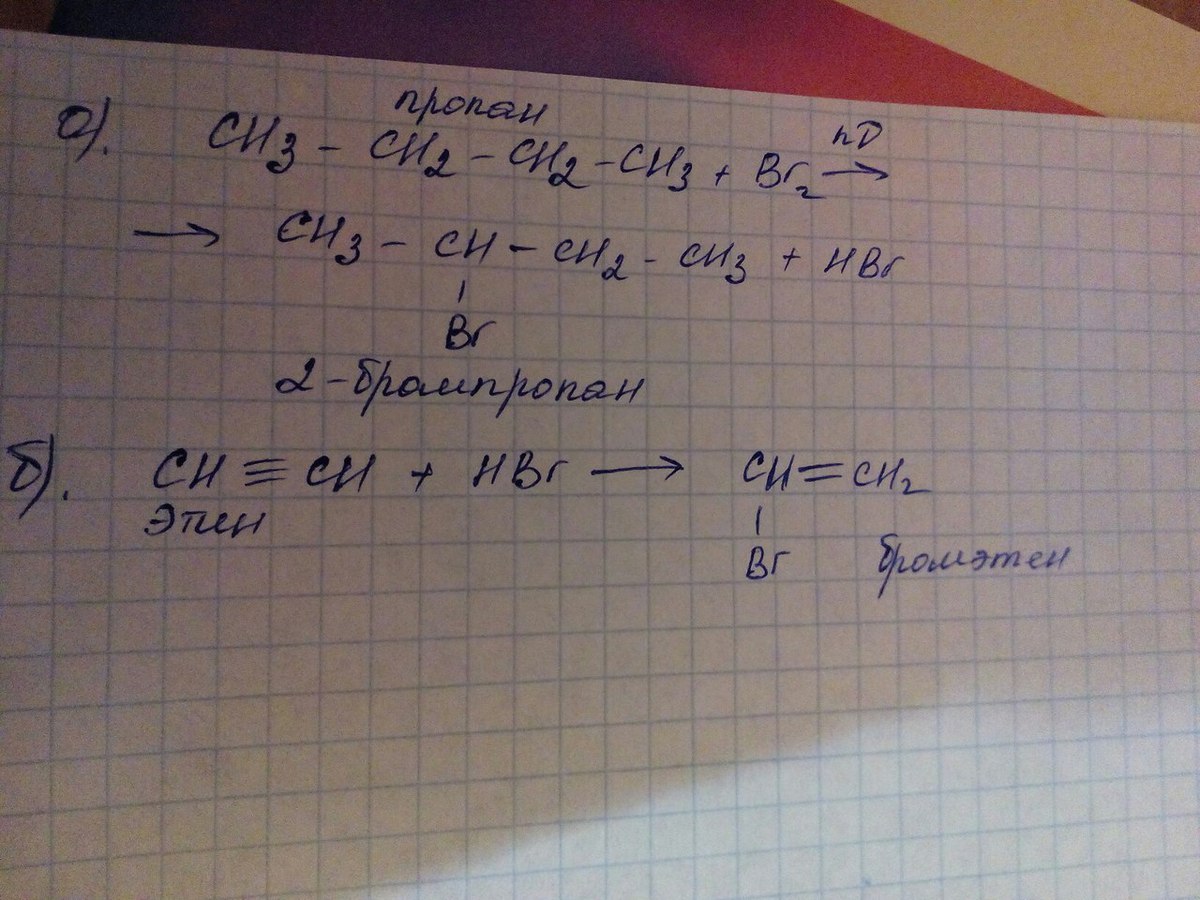 а). пропан
CH3 - CH2 - CH2 - CH3 + Br2 →
→ CH3 - CH - CH2 - CH3 + HBr
Br
2-бромпропан
б). CH ≡ CH + HBr → CH = CH2
Br
бромэтен